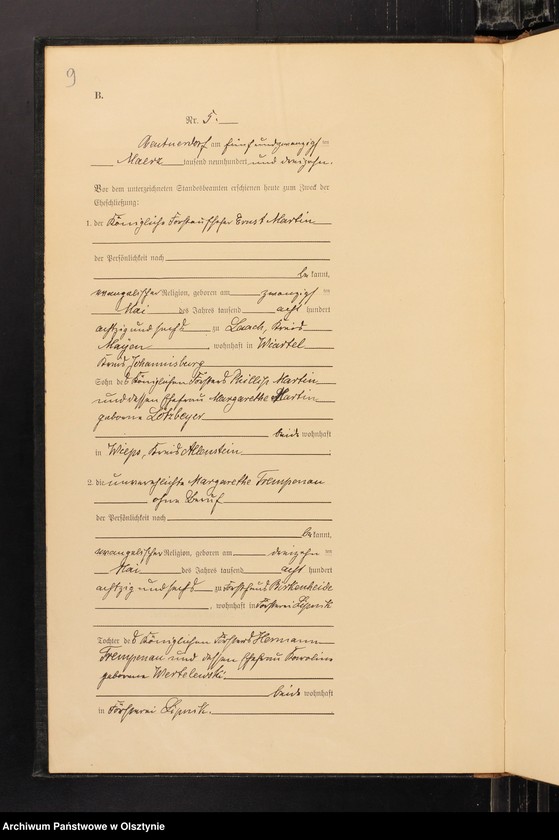 9
B.
Nr. 5.
am fünfundzwanzigsten
Maerz tausend neunhundert und dreizehn.
Vor dem unterzeichneten Standesbeamten erschienen heute zum Zweck der
Eheschließung:
1. der Königliche Forstaufseher Ernst Martin
der Persönlichkeit nach
be kannt,
evangelischer Religion, geboren am zwanzigsten
Mai des Jahres tausend acht hundert
achtzig und sechs zu Laach, Kreis
Mayen, wohnhaft in Wiartel
Kreis Johannisburg
Sohn des Königlichen Försters Phillip Martin
und dessen Ehefrau Margarethe Martin
geborene Lotzbeyer
beide wohnhaft
in Wieps, Kreis Allenstein.
2. die unverehelichte Margarethe Trempenau
ohne Beruf
der Persönlichkeit nach
be kannt,
evangelischer Religion, geboren am dreizehnten
Mai des Jahres tausend acht hundert
achtzig und sechs zu Forsthaus Birkenheide
, wohnhaft in Försterei Lipnik
Tochter des Königlichen Försters Hermann
Trempenau und dessen Ehefrau Karoline
geborene Wertelewski.
beide wohnhaft
in Försterei Lipnik.
Archiwum Państwowe w Olsztynie